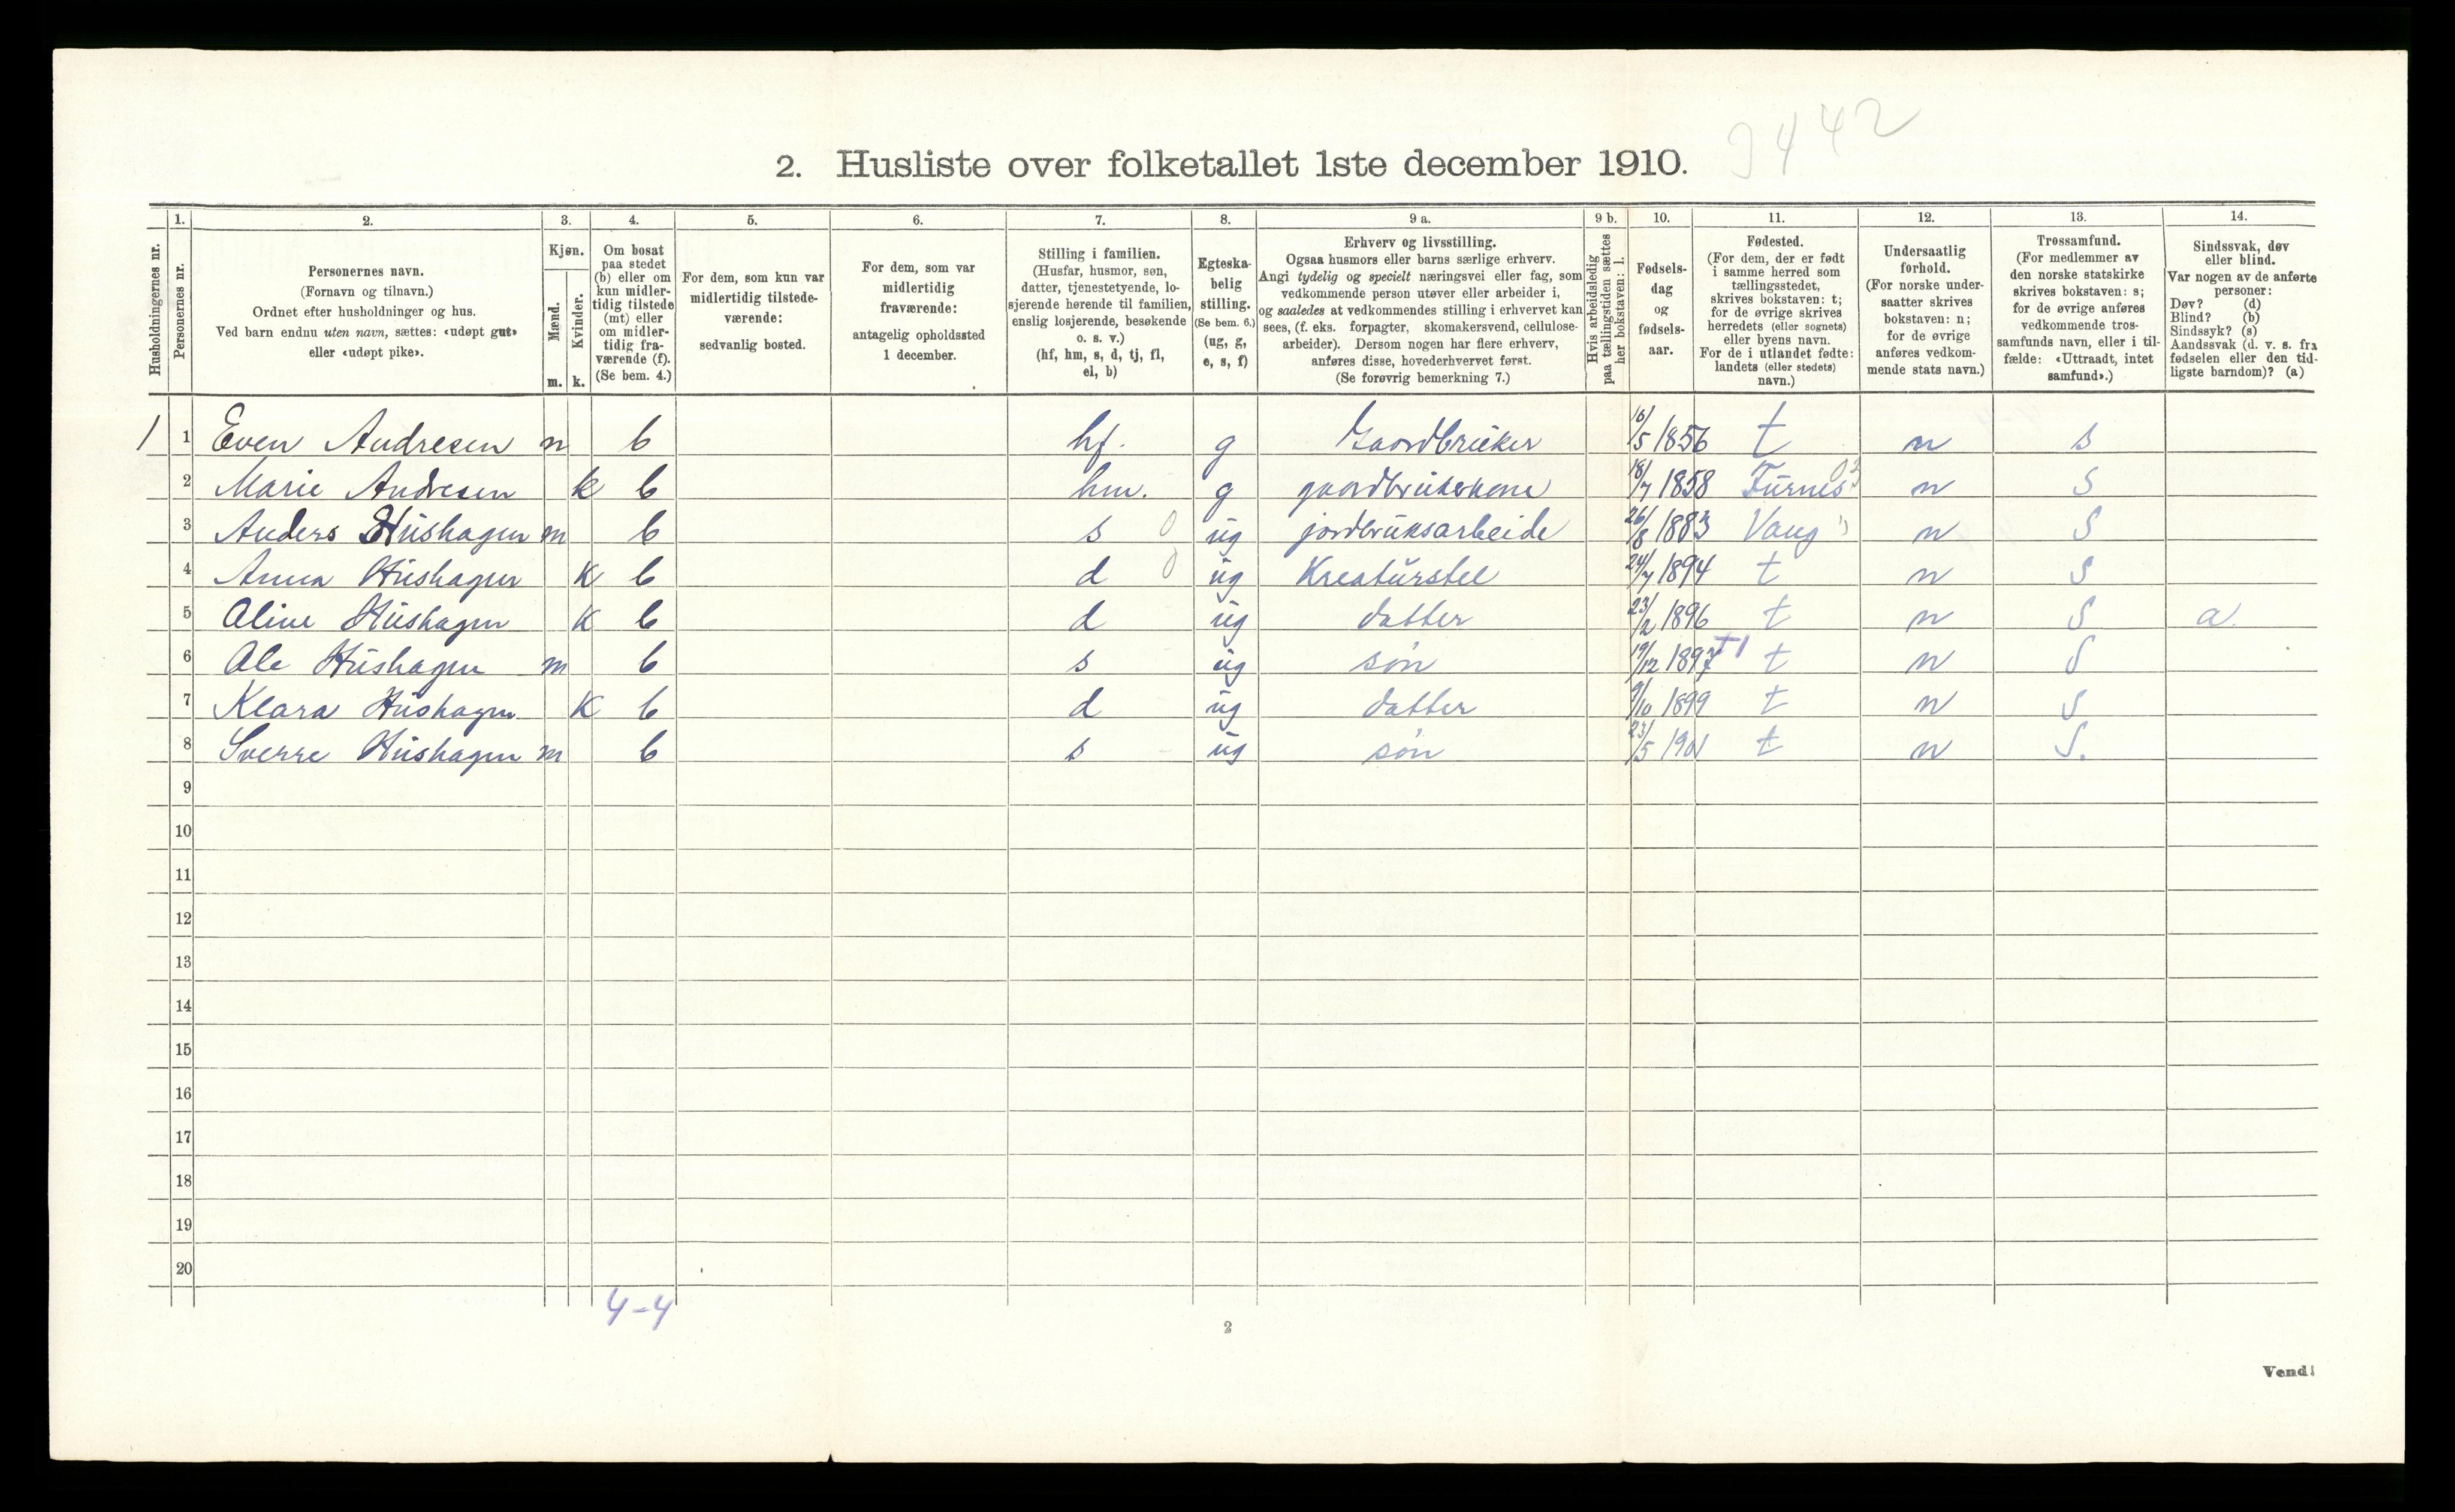 3442
2. Husliste over folketallet 1ste december 1910.
Husholdningernes nr.
1. Personernes nr.
2. Personernes navn. (Fornavn og tilnavn.) Ordnet efter husholdninger og hus. Ved barn endnu uten navn, sættes: «udøpt gut» eller «udøpt pike».
3. Kjøn. Mænd. m. Kvinder. k.
4. Om bosat paa stedet (b) eller om kun midler-tidig tilstede (mt) eller om midler-tidig fra-værende (f). (Se bem. 4.)
5. For dem, som kun var midlertidig tilstede-værende: sedvanlig bosted.
6. For dem, som var midlertidig fraværende: antagelig opholdssted 1 december.
7. Stilling i familien. (Husfar, husmor, søn, datter, tjenestetyende, lo-sjerende hørende til familien, enslig losjerende, besøkende o. s. v.) (hf, hm, s, d, tj, fl, el, b)
8. Egteska-belig stilling. (Se bem. 6.) (ug, g, e, s, f)
9 a. Erhverv og livsstilling. Ogsaa husmors eller barns særlige erhverv. Angi tydelig og specielt næringsvei eller fag, som vedkommende person utøver eller arbeider i, og saaledes at vedkommendes stilling i erhvervet kan sees, (f. eks. forpagter, skomakersvend, cellulose-arbeider). Dersom nogen har flere erhverv, anføres disse, hovederhvervet først. (Se forøvrig bemerkning 7.)
9 b. Hvis arbeidsledig paa tællingstiden sættes her bokstaven: l.
10. Fødsels-dag og fødsels-aar.
11. Fødested. (For dem, der er født i samme herred som tællingsstedet, skrives bokstaven: t; for de øvrige skrives herredets (eller sognets) eller byens navn. For de i utlandet fødte: landets (eller stedets) navn.)
12. Undersaatlig forhold. (For norske under-saatter skrives bokstaven: n; for de øvrige anføres vedkom-mende stats navn.)
13. Trossamfund. (For medlemmer av den norske statskirke skrives bokstaven: s; for de øvrige anføres vedkommende tros-samfunds navn, eller i til-fælde: «Uttraadt, intet samfund».)
14. Sindssvak, døv eller blind. Var nogen av de anførte personer: Døv? (d) Blind? (b) Sindssyk? (s) Aandssvak (d. v. s. fra fødselen eller den tid-ligste barndom)? (a)
1 1 Even Andresen m b hf. g Gaardbruker 16/5 1856 t n s
2 Marie Andresen k b hm. g gaardbrukerkone 18/7 1858 Furnes 03 n S
3 Anders Hushagen m b s 0 ug jordbruksarbeide 26/8 1883 Vang n S
4 Anna Hushagen k b d 0 ug Kreaturstel 24/7 1894 t n S
5 Oline Hushagen k b d ug datter 23/2 1896 t n S a.
6 Ole Hushagen m b s ug søn 19/12 1897 t n S
7 Klara Hushagen k b d ug datter 9/10 1899 t n S
8 Sverre Hushagen m b s ug søn 23/5 1901 t n S.
9
10
11
12
13
14
15
16
17
18
19
20
4-4
2
Vend!